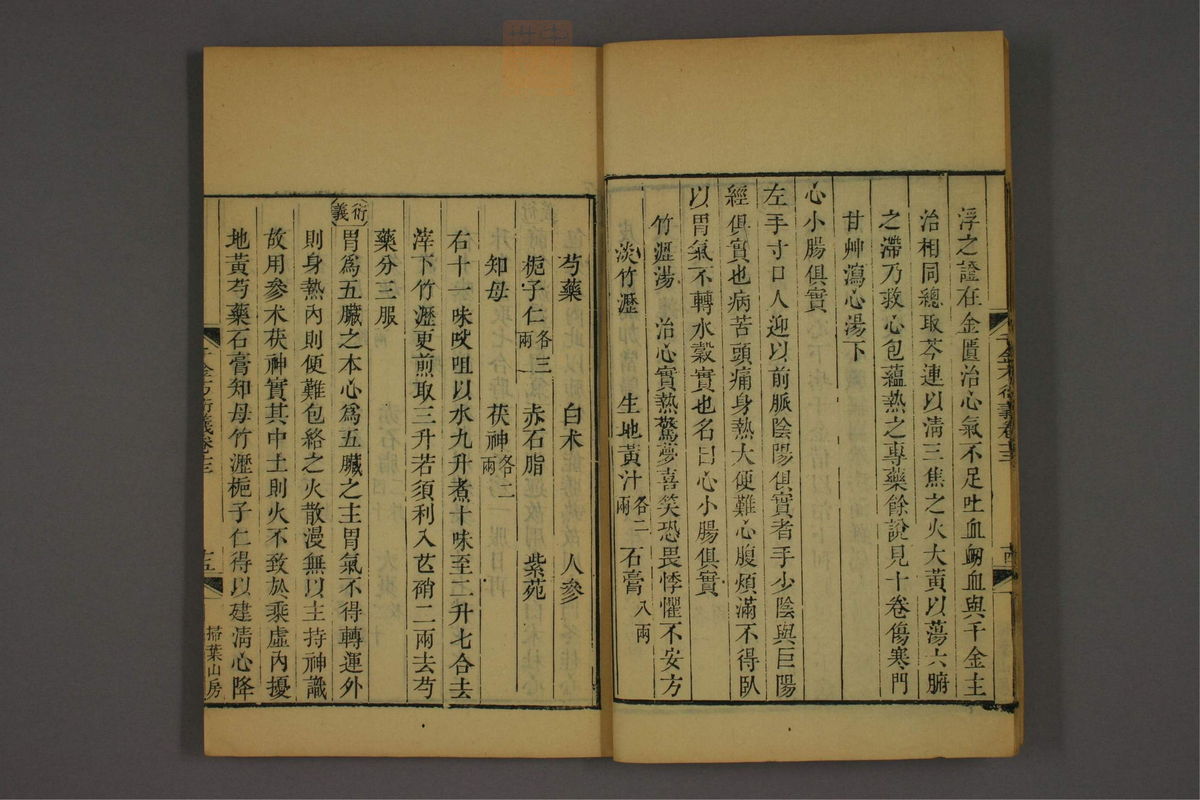 浮之證在金匱治心氣不足吐血衂血與千金主
治相同總取芩連以清三焦之火大黃以蕩六腑
之滯乃救心包蘊熱之專藥餘說見十卷傷寒門
甘艸瀉心湯下
心小腸俱實
左手寸口人迎以前脈陰陽俱實者手少陰與巨陽
經俱實也病苦頭痛身熱大便難心腹煩滿不得臥
以胃氣不轉水穀實也名曰心小腸俱實
竹瀝湯 治心實熱驚夢喜笑恐畏悸懼不安方
淡竹瀝 生地黃汁各二兩 石膏八兩
芍藥 白朮 人參
梔子仁各三兩 赤石脂 紫苑
知母 茯神各二兩
右十一味㕮咀以水九升煮十味至二升七合去
滓下竹瀝更煎取三升若須利入芒硝二兩去芍
藥分三服
衍義
胃爲五臟之本心爲五臟之主胃氣不得轉運外
則身熱內則便難包絡之火散漫無以主持神識
故用參朮茯神實其中土則火不致於乘虛內擾
地黃芍藥石膏知母竹瀝梔子仁得以建清心降
千金方衍義卷十三
十五
掃葉山房